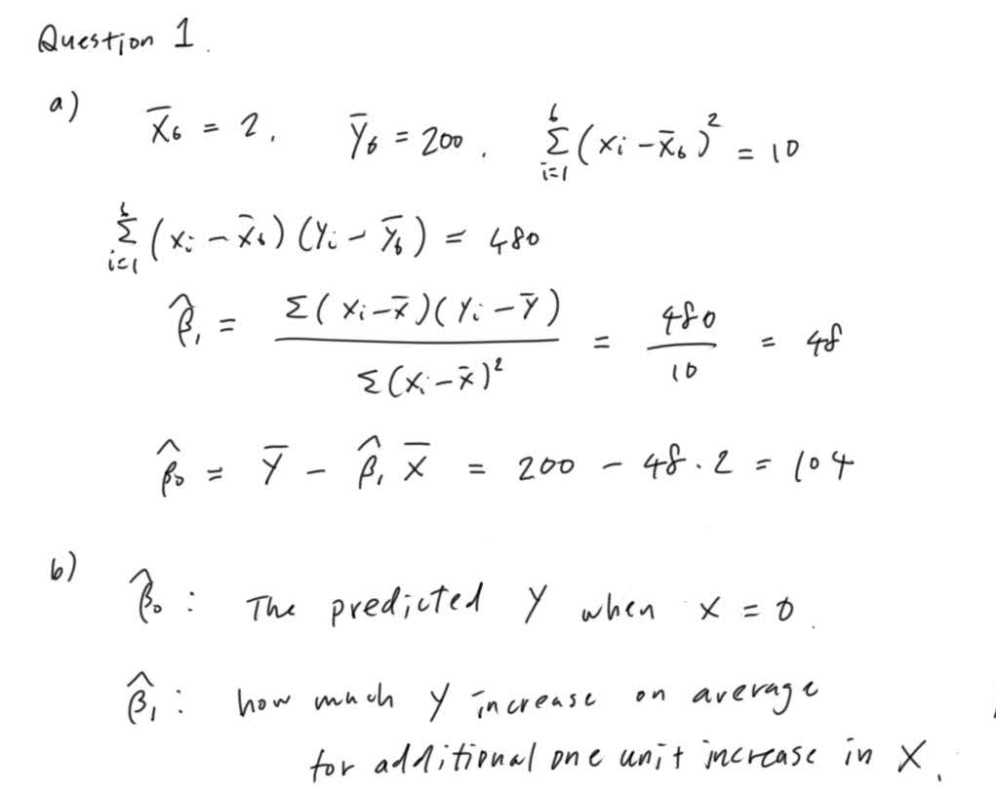 Question 1.
a) X̄₆ = 2, Ȳ₆ = 200, Σᵢ₌₁⁶ (xᵢ − x̄₆)² = 10
Σᵢ₌₁⁶ (xᵢ − x̄₆)(Yᵢ − Ȳ₆) = 480
β̂₁ = Σ(xᵢ − x̄)(Yᵢ − Ȳ) / Σ(xᵢ − x̄)² = 480 / 10 = 48
β̂₀ = Ȳ − β̂₁ X̄ = 200 − 48 · 2 = 104
b) β̂₀ : The predicted Y when x = 0.
β̂₁ : how much Y increase on average
for additional one unit increase in X.